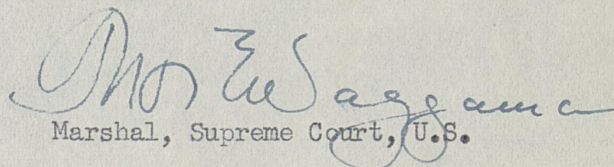 Thos E Waggaman
Marshal, Supreme Court, U.S.